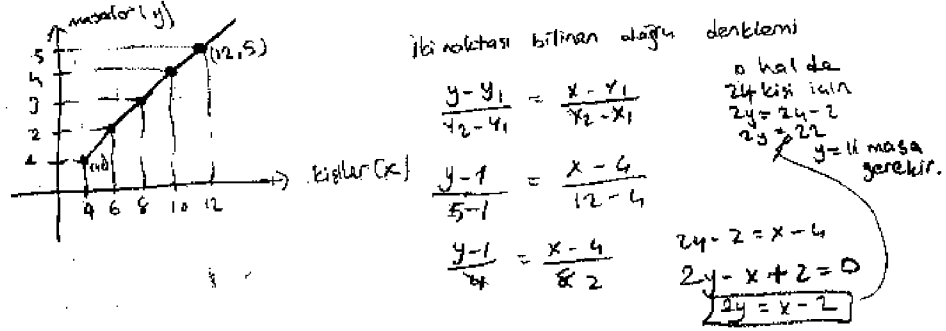 masalar (y)
5
4
3
2
1
(12,5)
(4,1)
4 6 8 10 12
kişiler (x)
İki noktası bilinen doğru denklemi
y-y₁ / y₂-y₁ = x-x₁ / x₂-x₁
y-1 / 5-1 = x-4 / 12-4
y-1 / 4 = x-4 / 8 2
2y-2 = x-4
2y-x+2=0
2y = x-2
o halde
24 kişi için
2y = 24-2
2y = 22
y=11 masa
gerekir.